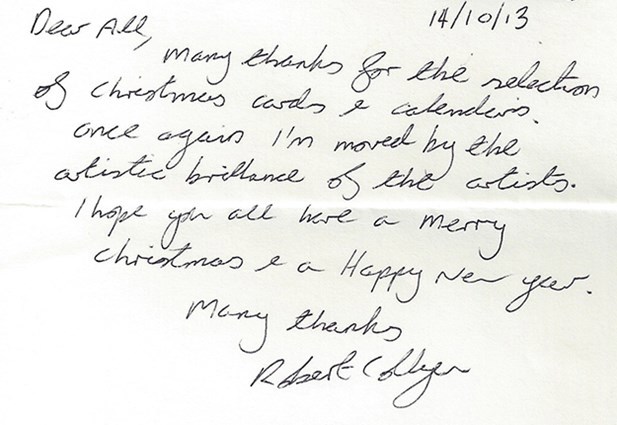 14/10/13
Dear All,
Many thanks for the selection
of Christmas cards & calenders.
once again I'm moved by the
artistic brillance of the artists.
I hope you all have a Merry
Christmas & a Happy New year.
Many thanks
Robert Collyer